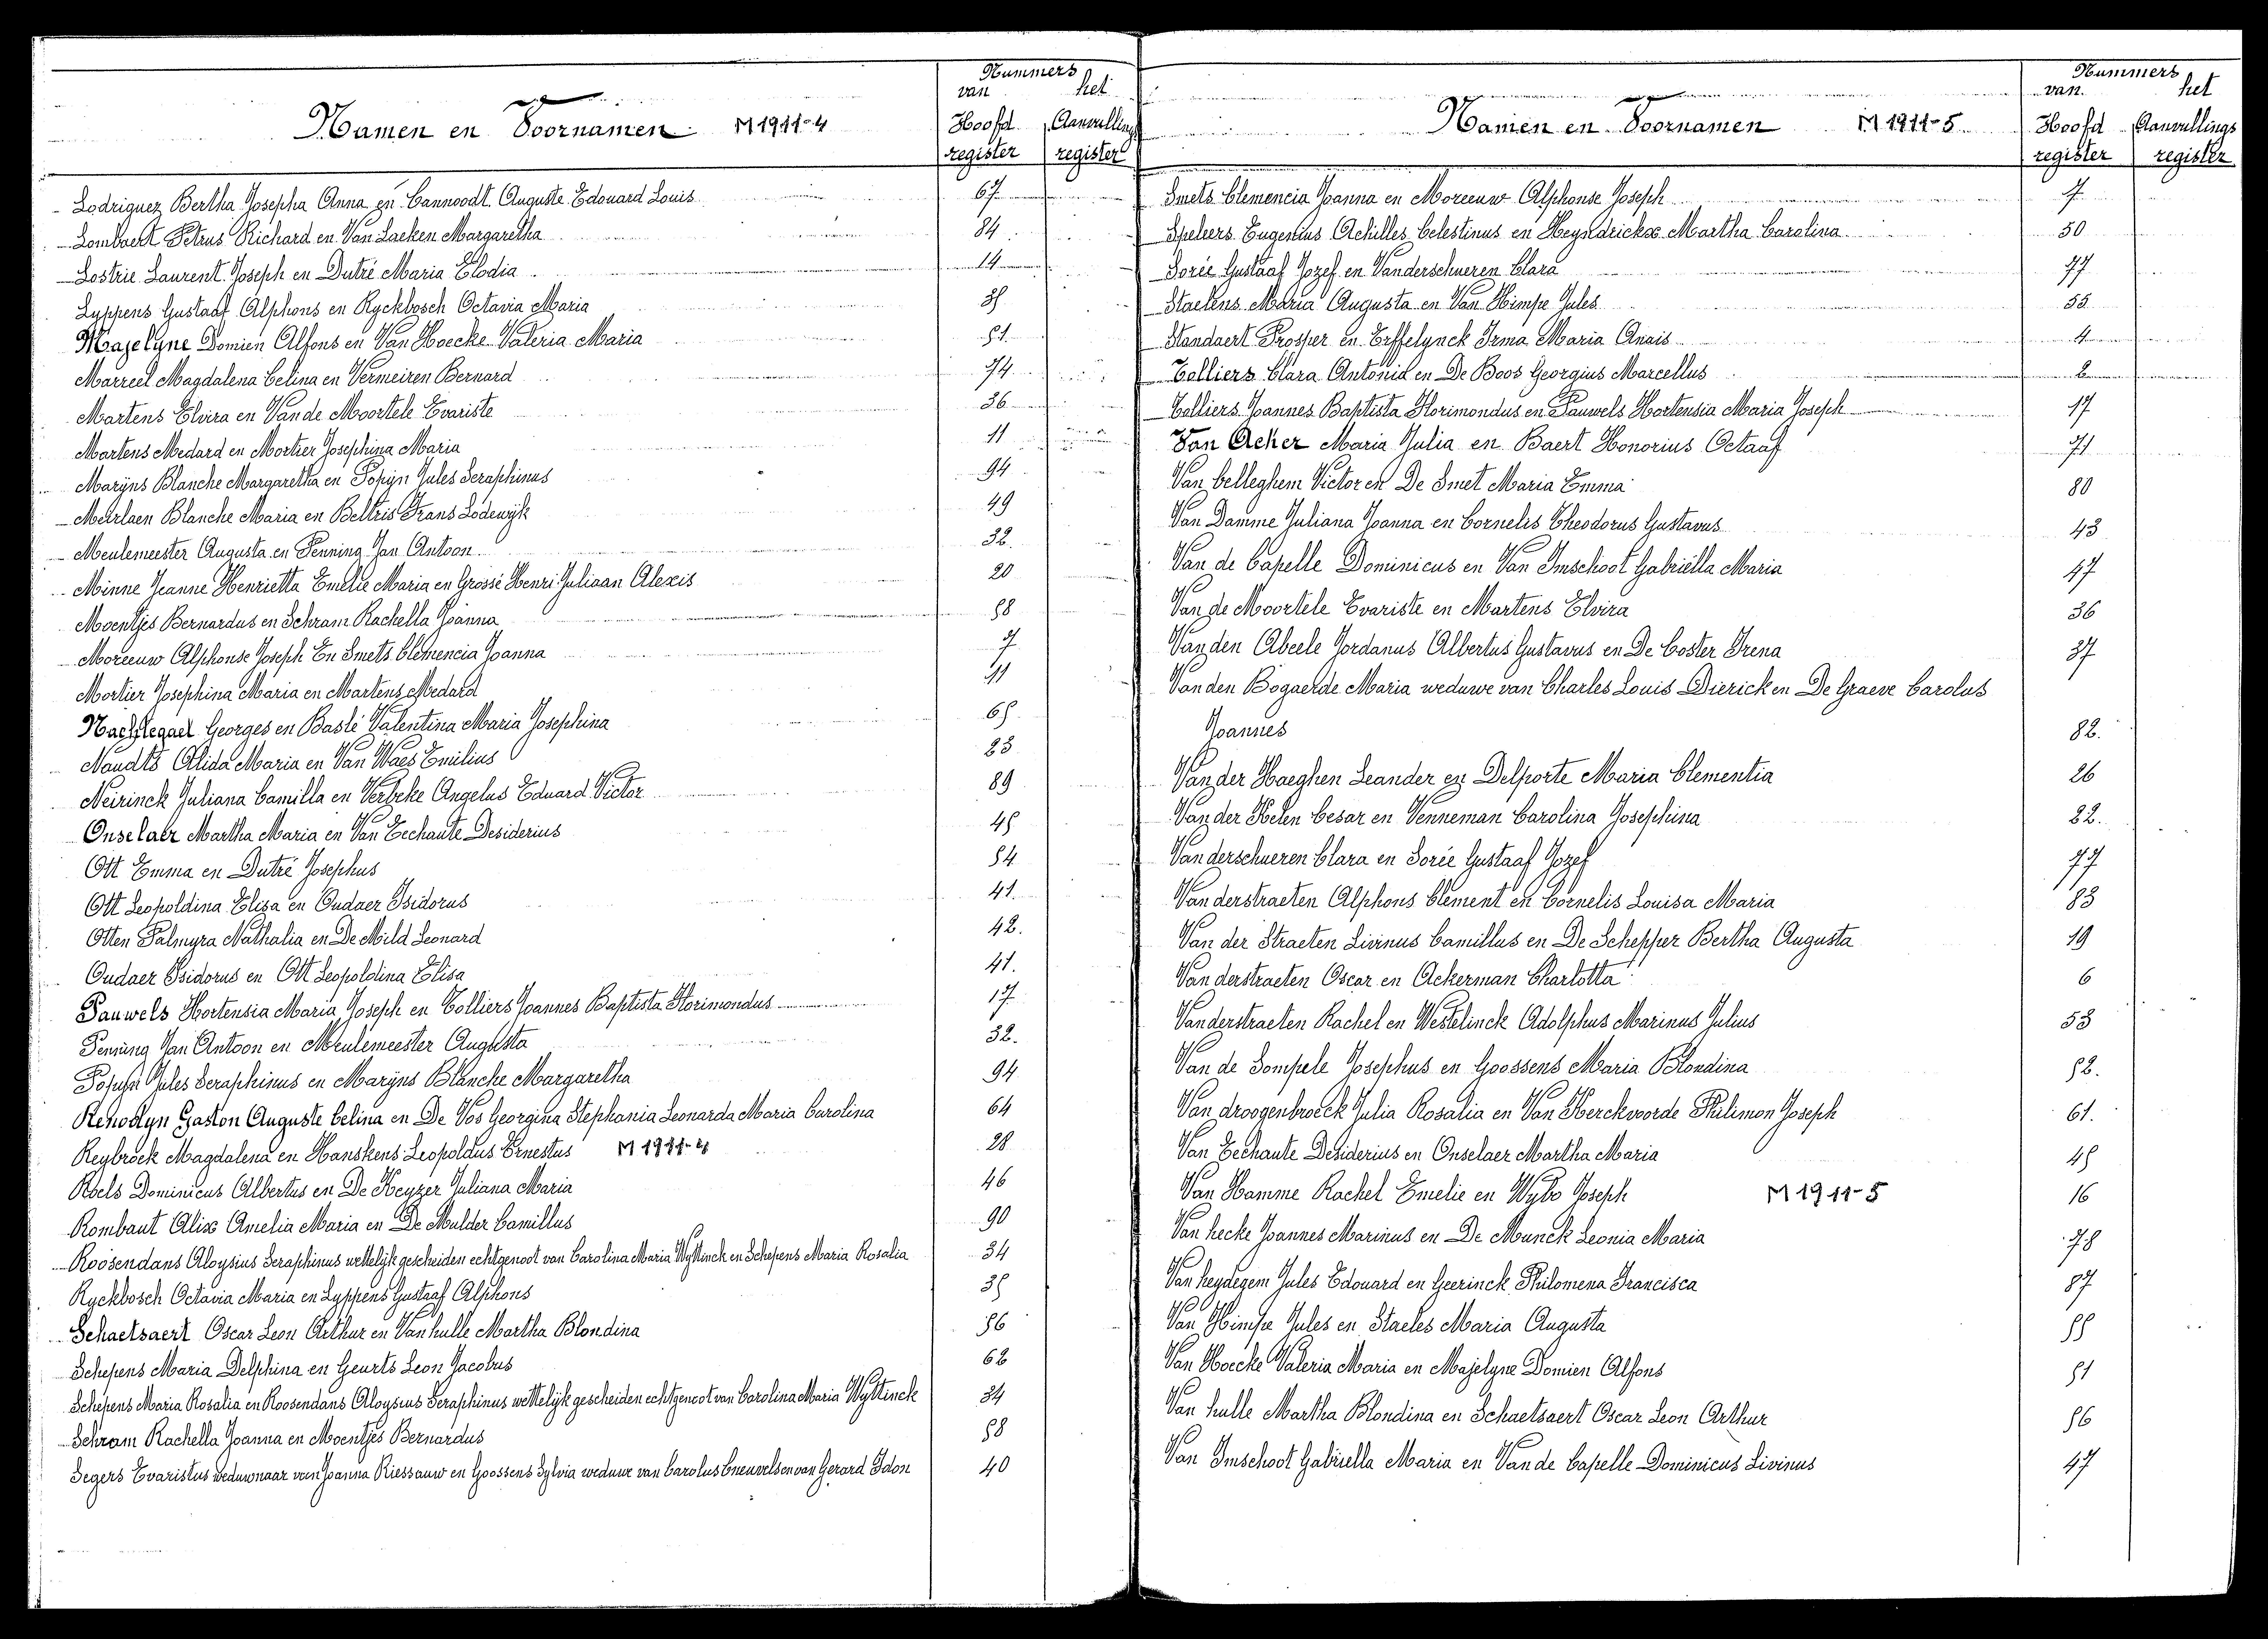 Namen en Voornamen M 1911-4
Nummers
van het
Hoofd register Aanvullings register
Lodriguez Bertha Josepha Anna en Cannoodt Auguste Edouard Louis 67
Lombaert Petrus Richard en Van Laeken Margaretha 84
Lostrie Laurent Joseph en Dutré Maria Elodia 14
Lyppens Gustaaf Alphons en Ryckbosch Octavia Maria 35
Majelyne Domien Alfons en Van Hoecke Valeria Maria 51
Marreel Magdalena Celina en Vermeiren Bernard 74
Martens Elvira en Van de Moortele Evariste 36
Martens Medard en Mortier Josephina Maria 11
Marijns Blanche Margaretha en Popijn Jules Seraphinus 94
Meirlaen Blanche Maria en Beltris Frans Lodewijk 49
Meulemeester Augusta en Penning Jan Antoon 32.
Minne Jeanne Henrietta Emelie Maria en Grossé Henri Juliaan Alexis 20
Moentjes Bernardus en Schram Rachella Joanna 58
Moreeuw Alphonse Joseph En Smets Clemencia Joanna 7
Mortier Josephina Maria en Martens Medard 11
Nachtegael Georges en Baslé Valentina Maria Josephina 65
Naudts Alida Maria en Van Waes Emilius 23
Neirinck Juliana Camilla en Verbeke Angelus Eduard Victor 89
Onselaer Martha Maria en Van Eechaute Desiderius 45
Ott Emma en Dutré Josephus 54
Ott Leopoldina Elisa en Oudaer Isidorus 41.
Otten Palmyra Nathalia en De Mild Leonard 42.
Oudaer Isidorus en Ott Leopoldina Elisa 41.
Pauwels Hortensia Maria Joseph en Colliers Joannes Baptista Florimondus 17
Penning Jan Antoon en Meulemeester Augusta 32.
Popijn Jules Seraphinus en Marijns Blanche Margaretha 94
Renodyn Gaston Auguste Celina en De Vos Georgina Stephania Leonarda Maria Carolina 64
Reybrock Magdalena en Hanskens Leopoldus Ernestus M 1911-4 28
Roels Dominicus Albertus en De Keyzer Juliana Maria 46
Rombaut Alix Amelia Maria en De Mulder Camillus 90
Roosendans Aloysius Seraphinus wettelijk gescheiden echtgenoot van Carolina Maria Wyttinck en Schepens Maria Rosalia 34
Ryckbosch Octavia Maria en Lyppens Gustaaf Alphons 35
Schaetsaert Oscar Leon Arthur en Van hulle Martha Blondina 56
Schepens Maria Delphina en Geurts Leon Jacobus 62
Schepens Maria Rosalia en Roosendans Aloysius Seraphinus wettelijk gescheiden echtgenoot van Carolina Maria Wyttinck 34
Schram Rachella Joanna en Moentjes Bernardus 58
Segers Evaristus weduwnaar van Joanna Riessauw en Goossens Sylvia weduwe van Carolus Cneuvels en van Gerard Idon 40
Namen en Voornamen M 1911-5
Nummers
van het
Hoofd register Aanvullings register
Smets Clemencia Joanna en Moreeuw Alphonse Joseph 7
Speleers Eugenius Achilles Celestinus en Heyndrickx Martha Carolina 50
Sorée Gustaaf Jozef en Vanderschueren Clara 77
Staelens Maria Augusta en Van Himpe Jules 55
Standaert Prosper en Erffelynck Irma Maria Anaïs 4
Colliers Clara Antonia en De Boos Georgius Marcellus 2
Colliers Joannes Baptista Florimondus en Pauwels Hortensia Maria Joseph 17
Van Acker Maria Julia en Baert Honorius Octaaf 71
Van belleghem Victor en De Smet Maria Emma 80
Van Damme Juliana Joanna en Cornelis Theodorus Gustavus 43
Van de Capelle Dominicus en Van Imschoot Gabriëlla Maria 47
Van de Moortele Evariste en Martens Elvira 36
Van den Abeele Jordanus Albertus Gustavus en De Coster Irena 37
Van den Bogaerde Maria weduwe van Charles Louis Dierick en De Graeve Carolus
Joannes 82.
Van der Haeghen Leander en Delporte Maria Clementia 26
Van der Kelen Cesar en Venneman Carolina Josephina 22.
Vanderschueren Clara en Sorée Gustaaf Jozef 77
Vanderstraeten Alphons Clement en Cornelis Louisa Maria 83
Van der Straeten Livinus Camillus en De Schepper Bertha Augusta 19
Vanderstraeten Oscar en Ackerman Charlotta 6
Vanderstraeten Rachel en Westelinck Adolphus Marinus Julius 53
Van de Sompele Josephus en Goossens Maria Blondina 52.
Van droogenbroeck Julia Rosalia en Van Herckvoorde Philimon Joseph 61.
Van Eechaute Desiderius en Onselaer Martha Maria 45
Van Hamme Rachel Emelie en Wybo Joseph M 1911-5 16
Van hecke Joannes Marinus en De Munck Leonia Maria 78
Van heydegem Jules Edouard en Geerinck Philomena Francisca 87
Van Himpe Jules en Staeles Maria Augusta 55
Van Hoecke Valeria Maria en Majelyne Domien Alfons 51
Van hulle Martha Blondina en Schaetsaert Oscar Leon Arthur 56
Van Imschoot Gabriella Maria en Van de Capelle Dominicus Livinus 47